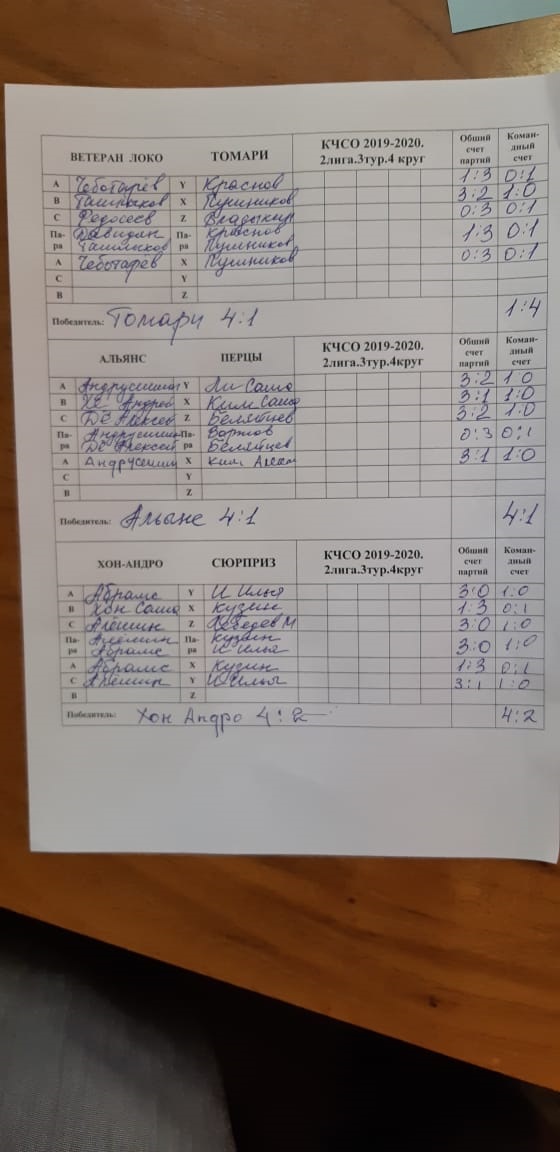 ВЕТЕРАН ЛОКО ТОМАРИ КЧСО 2019-2020. 2лига.3тур.4 круг Общий счет партий Коман-дный счет
А Чеботарёв Y Краснов 1:3 0:1
В Ташлыков X Пушников 3:2 1:0
С Федосеев Z Владыкин 0:3 0:1
Па-ра Давидян Ташлыков Па-ра Краснов Пушников 1:3 0:1
А Чеботарёв X Пушников 0:3 0:1
С Y
В Z
Победитель: Томари 4:1 1:4
АЛЬЯНС ПЕРЦЫ КЧСО 2019-2020. 2лига.3тур.4круг Общий счет партий Коман-дный счет
А Y Ли Саша 3:2 1:0
В Хе Андрей X Ким Саша 3:1 1:0
С Дё Алексей Z Белятцев 3:2 1:0
Па-ра Дё Алексей Па-ра Белятцев 0:3 0:1
А X Ким 3:1 1:0
С Y
В Z
Победитель: Альянс 4:1 4:1
ХОН-АНДРО СЮРПРИЗ КЧСО 2019-2020. 2лига.3тур.4круг Общий счет партий Коман-дный счет
А Абрамс Y И Илья 3:0 1:0
В Хон Саша X Кузин 1:3 0:1
С Алёшин Z Лебедев М 3:0 1:0
Па-ра Алёшин Абрамс Па-ра Кузин И Илья 3:0 1:0
А Абрамс X Кузин 1:3 0:1
С Алёшин Y И Илья 3:1 1:0
В Z
Победитель: Хон Андро 4:2 4:2